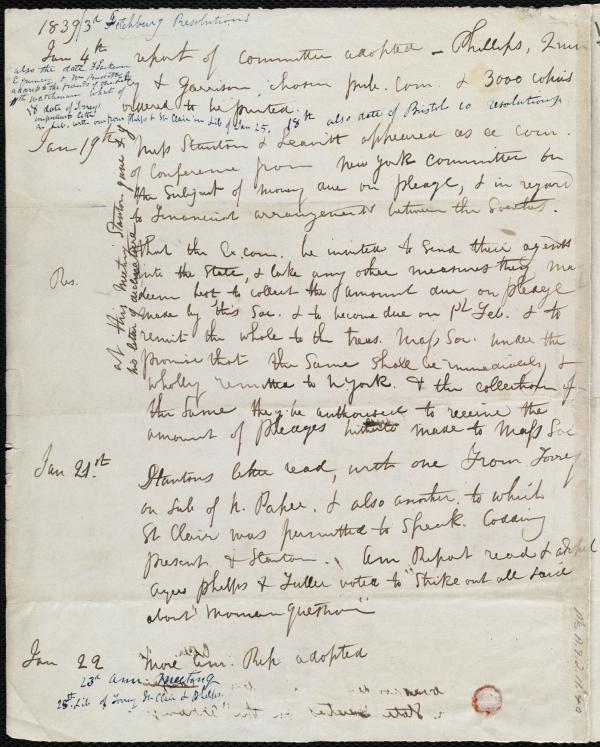 1839 / 3d Fitchburg Resolutions
Jan 4th report of committee adopted – Phillips, Quin
cy & Garrison chosen pub. Com. & 3000 copies
ordered to be printed.
also the date
18th also date of Bristol Co resolutions
in Lib. with one from Phelps & St Clair in Lib of Jan 25.
Jan 19th Messrs Stanton & Leavitt appeared as a Com.
of Conference from New York Committee on
the subject of money due on pledge, & in regard
to Financial arrangements between the Societies.
at this meeting Stanton gave
his letter of
Res. That the Ex. com. be invited to send their agents
into the State, & take any other measures they may
deem best to collect the amount due on pledge
made by this Soc. & to become due on 1st Feb. & to
remit the whole to the treas. Mass Soc. under the
promise that the same shall be immediately &
wholly remitted to N York. & the collection of
the same they be authorised to receive the
amount of pledges hitherto made to Mass Soc
Jan 21st. Stantons letter read, with one from Torrey
on sub of n. Paper. & also another. to which
St Clair was permitted to speak. Codding
present & Stanton. Ann Report read & adopted
ayes Phelps & Fuller voted to "Strike out all said
about "Woman question"
Jan 22 More Ann. Rep adopted
23d Ann Meeting
25th Lib of Torrey St Clair & Phelps.